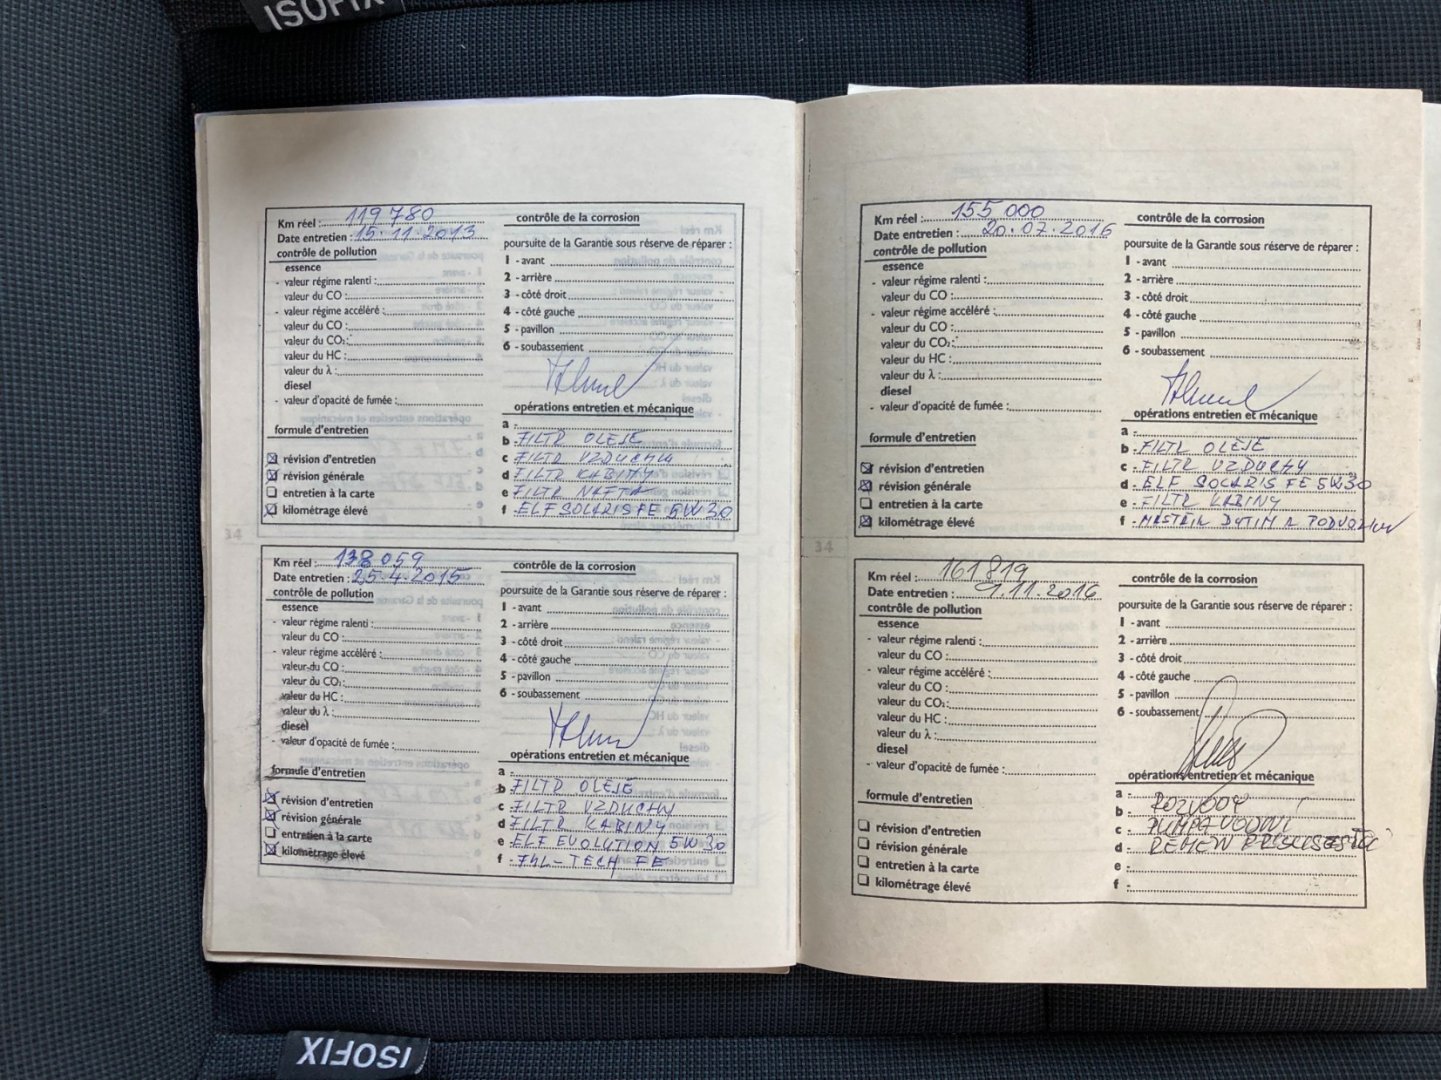 ISOFIX
Km réel : 119 780
Date entretien : 15.11.2013
contrôle de pollution
essence
- valeur régime ralenti :
valeur du CO :
- valeur régime accéléré :
valeur du CO :
valeur du CO₂ :
valeur du HC :
valeur du λ :
diesel
- valeur d'opacité de fumée :
formule d'entretien
révision d'entretien
révision générale
entretien à la carte
kilométrage élevé
contrôle de la corrosion
poursuite de la Garantie sous réserve de réparer :
1 - avant
2 - arrière
3 - côté droit
4 - côté gauche
5 - pavillon
6 - soubassement
opérations entretien et mécanique
a -
b - FILTR OLEJE
c - FILTR VZDUCHU
d - FILTR KABINY
e - FILTR NAFTA
f - ELF SOLARIS FE 5W30
34
Km réel : 138 059
Date entretien : 25.4.2015
contrôle de pollution
essence
- valeur régime ralenti :
valeur du CO :
- valeur régime accéléré :
valeur du CO :
valeur du CO₂ :
valeur du HC :
valeur du λ :
diesel
- valeur d'opacité de fumée :
formule d'entretien
révision d'entretien
révision générale
entretien à la carte
kilométrage élevé
contrôle de la corrosion
poursuite de la Garantie sous réserve de réparer :
1 - avant
2 - arrière
3 - côté droit
4 - côté gauche
5 - pavillon
6 - soubassement
opérations entretien et mécanique
a -
b - FILTR OLEJE
c - FILTR VZDUCHU
d - FILTR KABINY
e - ELF EVOLUTION 5W30
f - FUL-TECH FE
Km réel : 155 000
Date entretien : 20.07.2016
contrôle de pollution
essence
- valeur régime ralenti :
valeur du CO :
- valeur régime accéléré :
valeur du CO :
valeur du CO₂ :
valeur du HC :
valeur du λ :
diesel
- valeur d'opacité de fumée :
formule d'entretien
révision d'entretien
révision générale
entretien à la carte
kilométrage élevé
contrôle de la corrosion
poursuite de la Garantie sous réserve de réparer :
1 - avant
2 - arrière
3 - côté droit
4 - côté gauche
5 - pavillon
6 - soubassement
opérations entretien et mécanique
a -
b - FILTR OLEJE
c - FILTR VZDUCHU
d - ELF SOLARIS FE 5W30
e - FILTR KABINY
f - DUTIN A PODVOZKU
34
Km réel : 161 819
Date entretien : 1.11.2016
contrôle de pollution
essence
- valeur régime ralenti :
valeur du CO :
- valeur régime accéléré :
valeur du CO :
valeur du CO₂ :
valeur du HC :
valeur du λ :
diesel
- valeur d'opacité de fumée :
formule d'entretien
révision d'entretien
révision générale
entretien à la carte
kilométrage élevé
contrôle de la corrosion
poursuite de la Garantie sous réserve de réparer :
1 - avant
2 - arrière
3 - côté droit
4 - côté gauche
5 - pavillon
6 - soubassement
opérations entretien et mécanique
a -
b - ROZVODY
c - PUMPA VODNI
d - REMEN PRISLUSENSTVI
e -
f -
ISOFIX